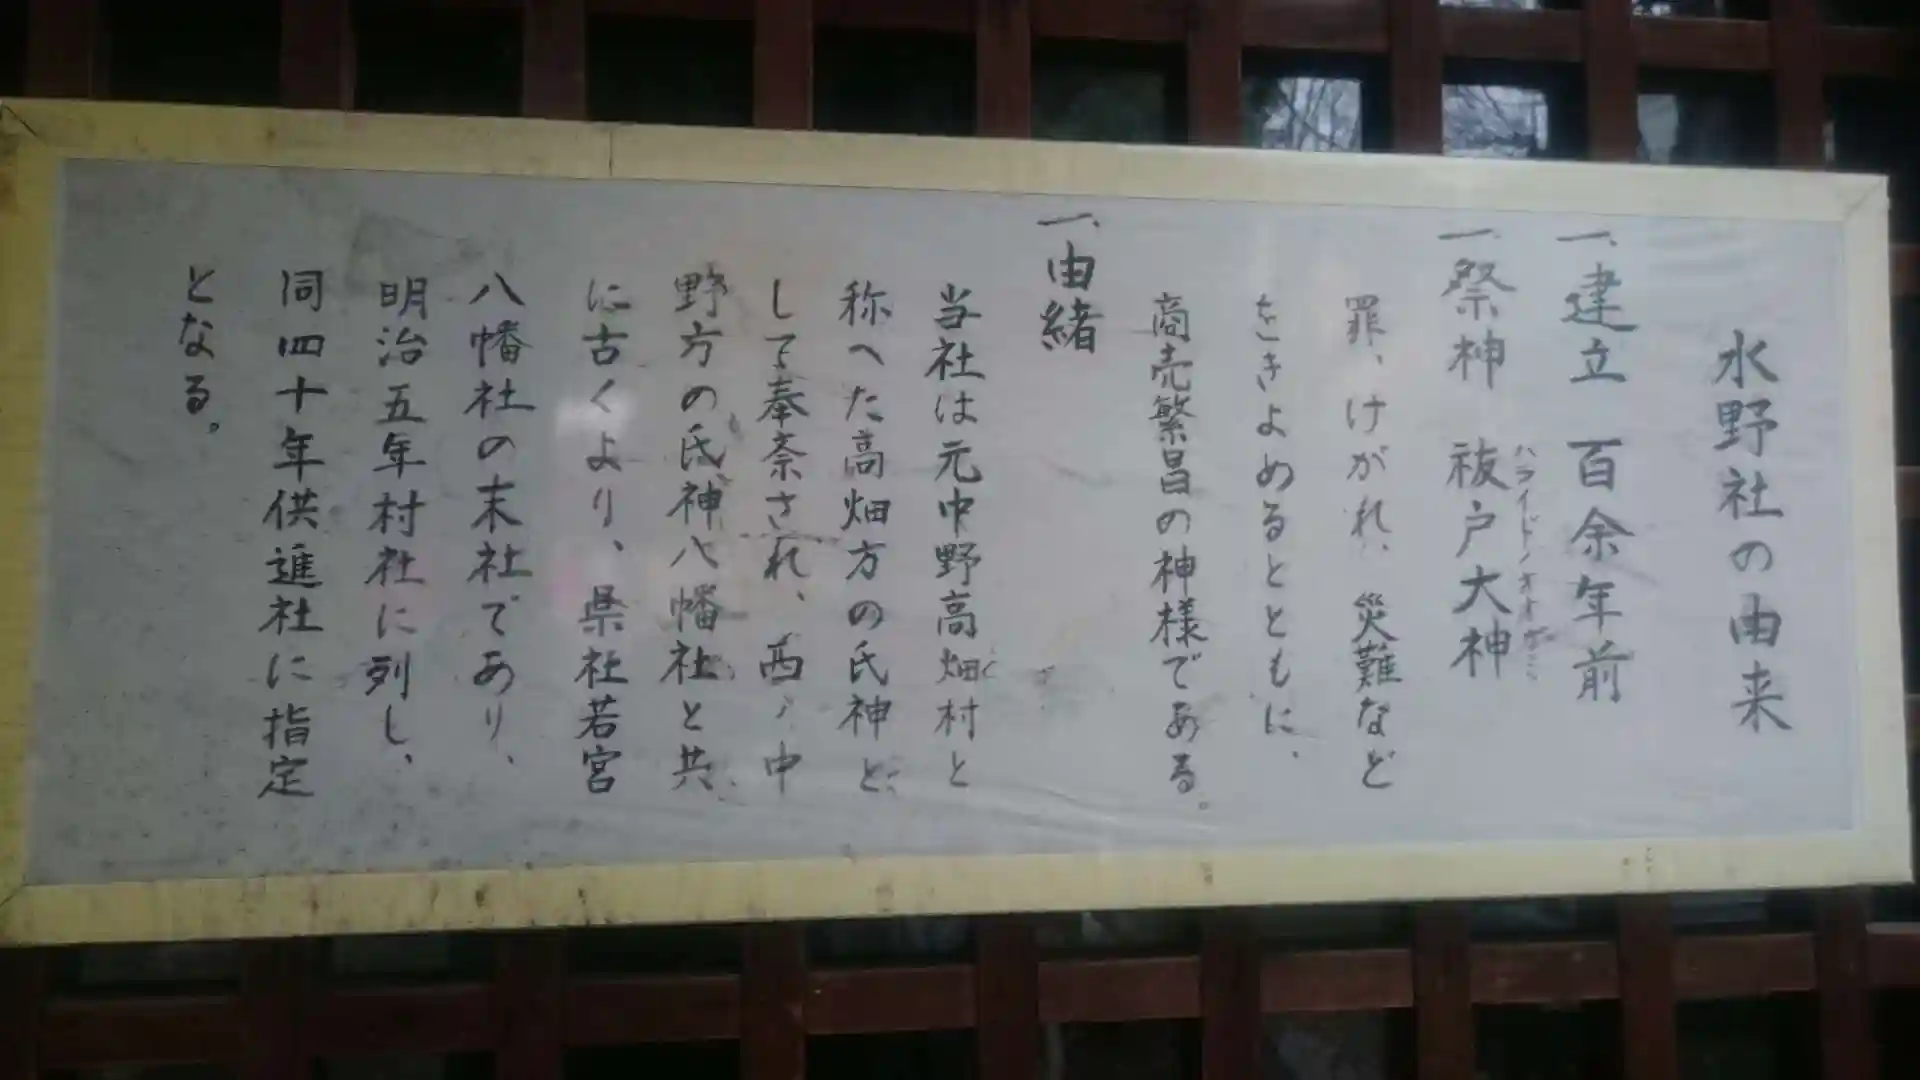 水野社の由来
一、建立 百余年前
一、祭神 祓戸大神
ハライドノオオ
罪、けがれ、災難など
をきよめるとともに、
商売繁昌の神様である。
一、由緒
当社は元中野高畑村と
称へた高畑方の氏神と
して奉斎され、西ノ中
野方の氏神八幡社と共
に古くより、県社若宮
八幡社の末社であり、
明治五年村社に列し、
同四十年供進社に指定
となる。